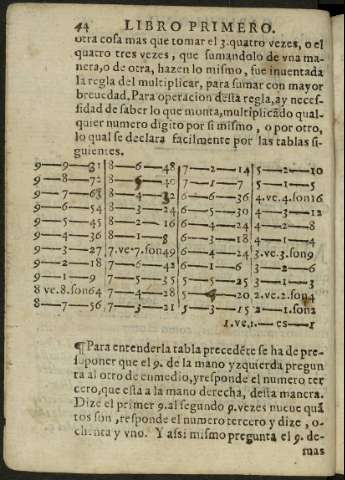 44 LIBRO PRIMERO.
otra cosa mas que tomar el 3. quatro vezes, o el
quatro tres vezes, que sumandolo de vna ma-
nera, o de otra, hazen lo mismo, fue inuentada
la regla del multiplicar, para sumar con mayor
breuedad. Para operacion desta regla, ay neces-
sidad de saber lo que monta, multiplicãdo qual-
quier numero digito por si mismo, o por otro,
lo qual se declara facilmente por las tablas si-
guientes.
9—9—81 8—6—48 7—2—14 5—2—10
9—8—72 8—5—40 7—1—7 5—1—5
9—7—63 8—4—32 6—6—36 4.ve.4.son16
9—6—54 8—3—24 6—5—30 4—3—12
9—5—45 8—2—16 6—4—24 4—2—8
9—4—36 8—1—8 6—3—18 4—1—4
9—3—27 7.ve.7.son49 6—4—24 3.ve.3.son9
9—2—18 7—6—42 6—1—6 3—2—6
9—1—9 7—5—35 5—5—25 3—1—3
8 ve.8.son64 7—4—28 5—4—20 2.ve.2.son4
8—7—56 7—3—21 5—3—15 2—1.son2
1.ve.1.—es—1
¶Para entender la tabla precedẽte se ha de pre-
suponer que el 9. de la mano yzquierda pregun
ta al otro de enmedio, y responde el numero ter
cero, que esta a la mano derecha, desta manera.
Dize el primer 9. al segundo 9. vezes nueue quã
tos son, responde el numero tercero y dize, o-
chenta y vno. Y assi mismo pregunta el 9. de-
mas